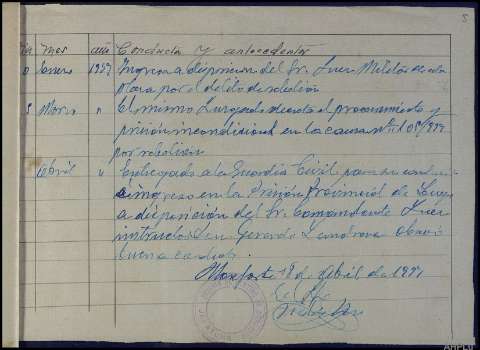 5
Dia Mes año Conducta y antecedentes
Enero 1937 Ingresa a disposicion del Sr. Juez Militar de esta
Plaza por el delito de rebelión
5 Marzo " El mismo Juzgado decreta el procesamiento y
prisión incondicional en la causa nº 105/937
por rebelión
Abril " Entregado a la Guardia Civil para su
e ingreso en la Prisión Provincial de Lugo
a disposición del Sr. Comandante Juez
instructor Don Gerardo
buena conducta
Monforte 18 de Abril de 1937
AHPLU